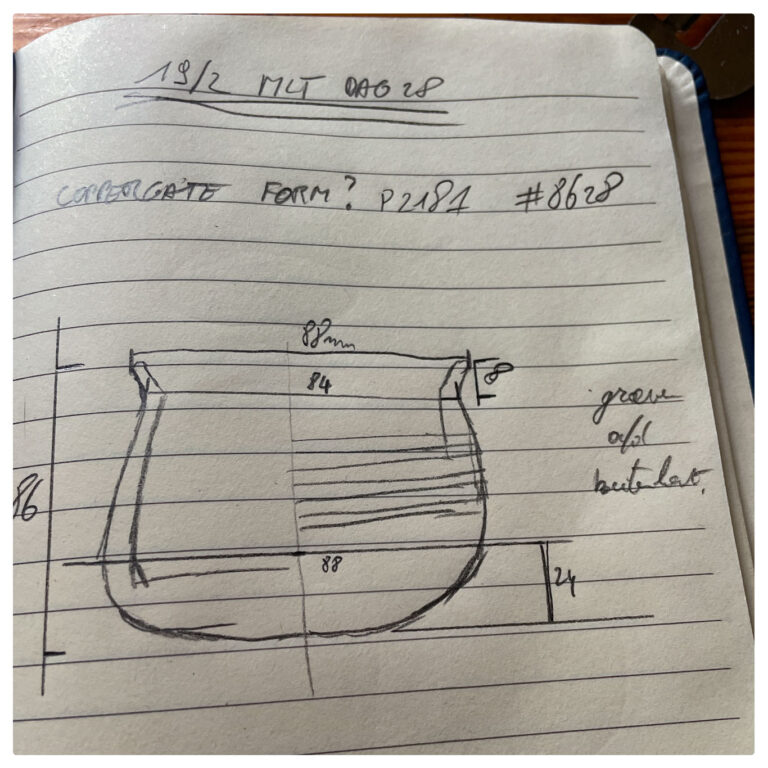 19/2 MLT DAG 28
COPPERGATE FORM? P2181 #8628
88mm
84
8
groeven
a/d
buitenkant.
86
88
24